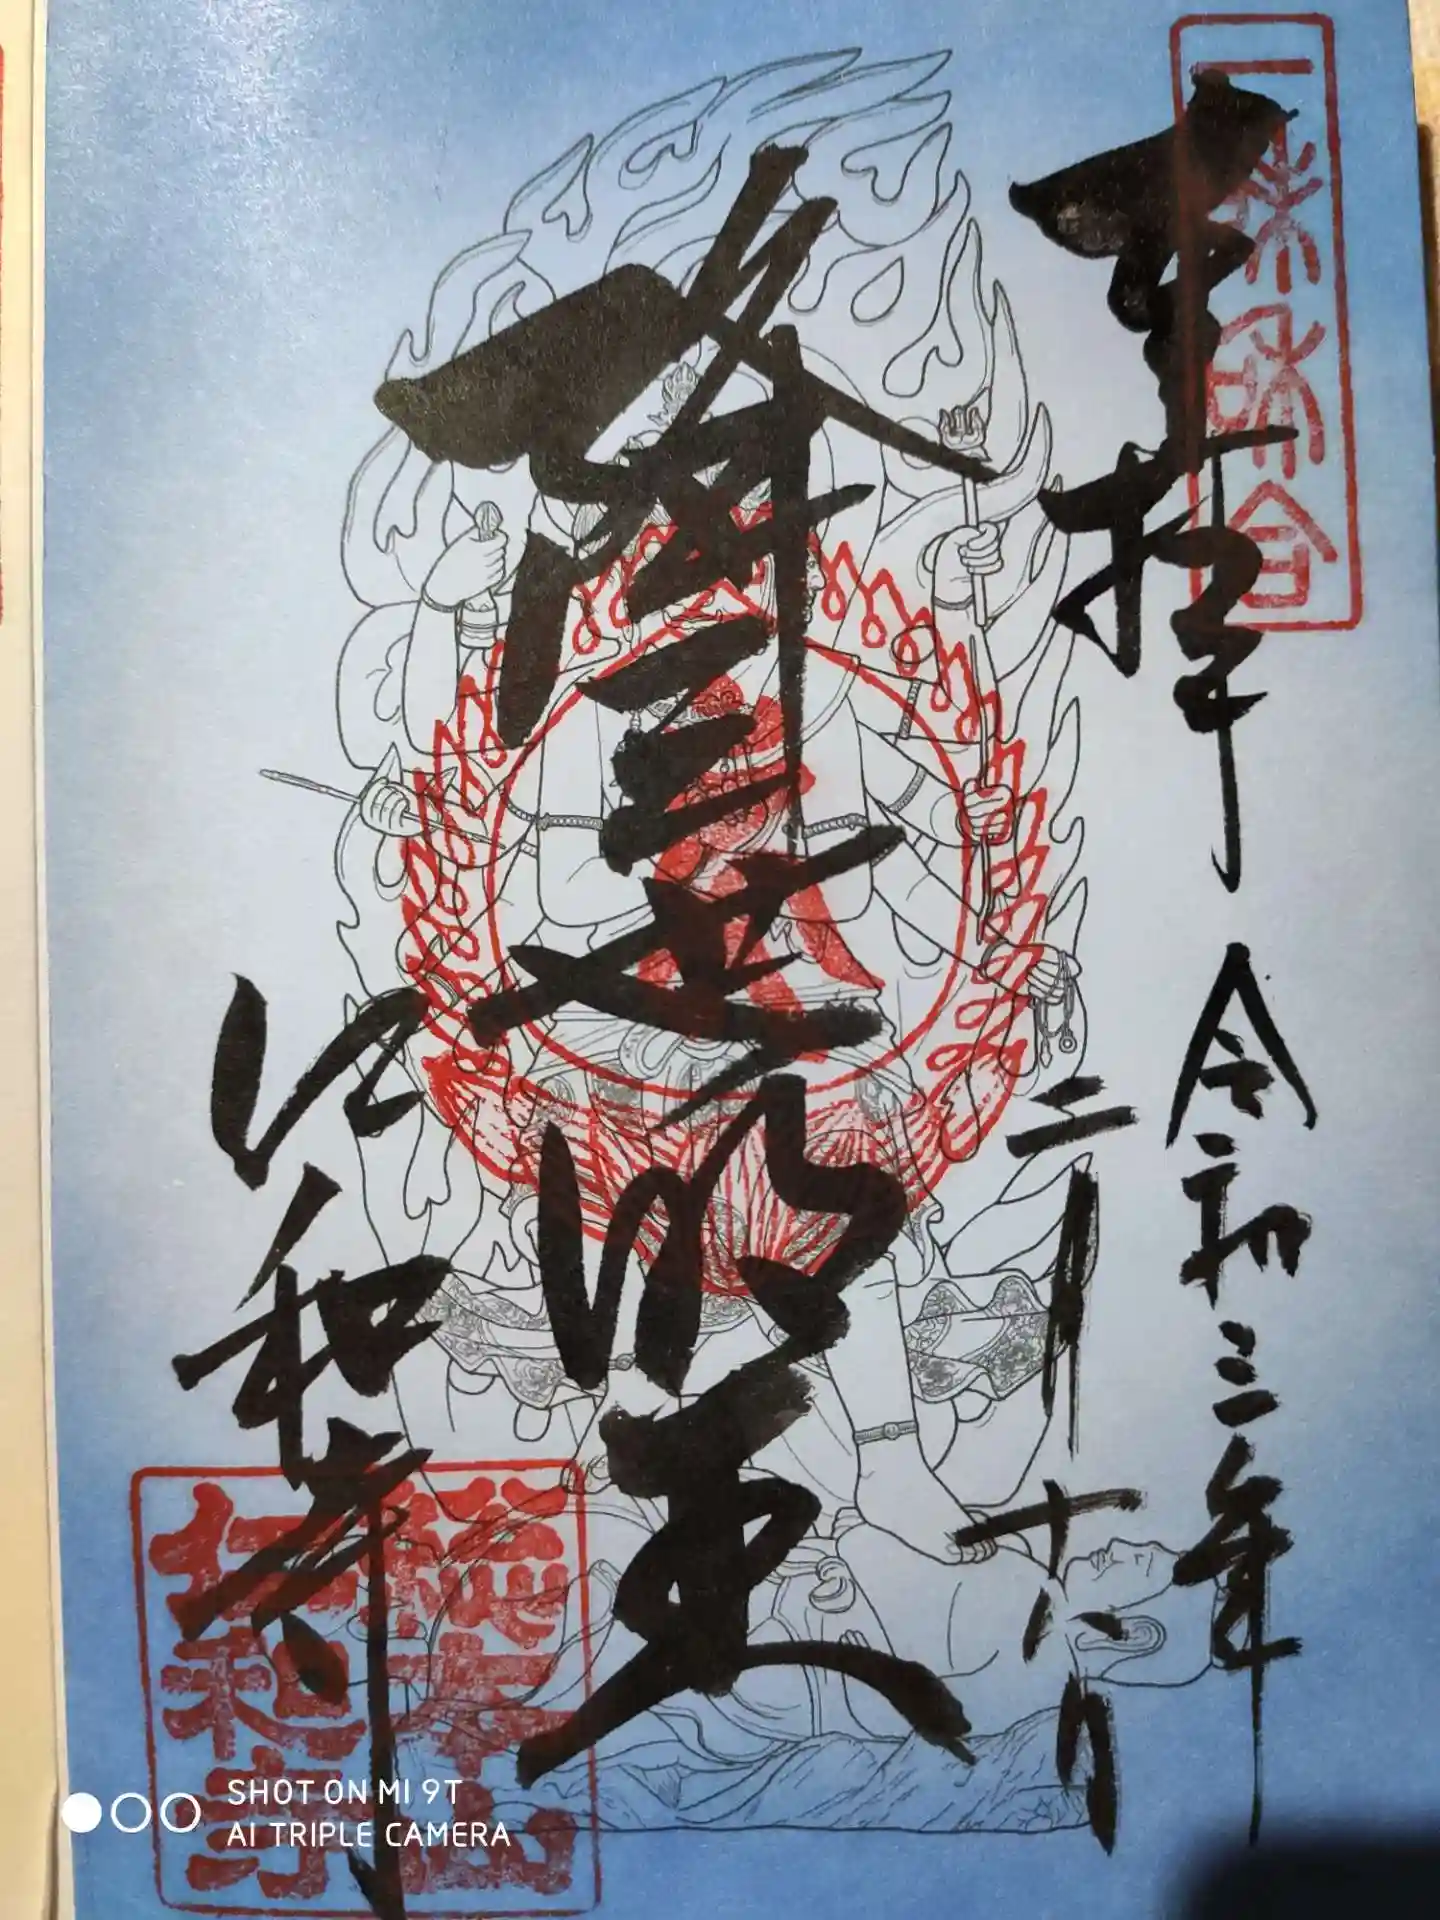 一味和合
奉拝 令和三年
二月十八日
降三世明王
和寺
本山
和寺
SHOT ON MI 9T
AI TRIPLE CAMERA